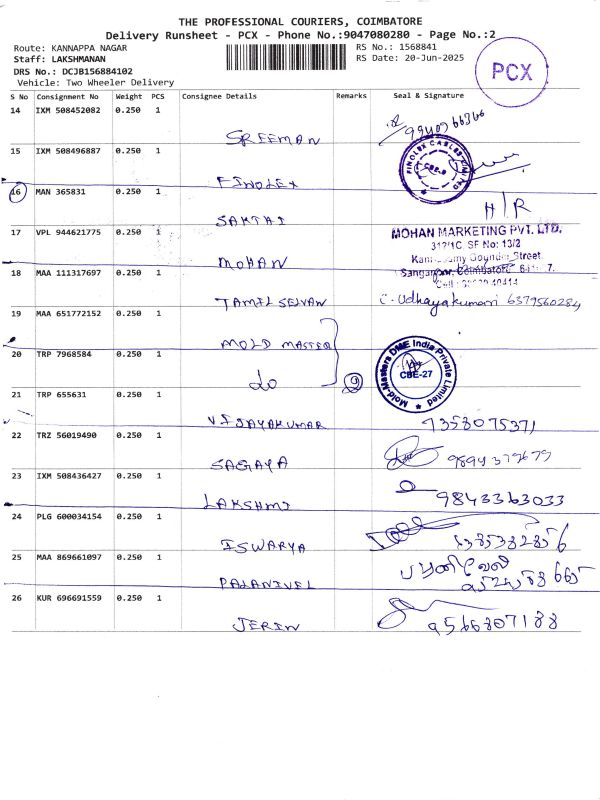 THE PROFESSIONAL COURIERS, COIMBATORE
Delivery Runsheet - PCX - Phone No.:9047080280 - Page No.:2
Route: KANNAPPA NAGAR
Staff: LAKSHMANAN
DRS No.: DCJB156884102
Vehicle: Two Wheeler Delivery
RS No.: 1568841
RS Date: 20-Jun-2025
PCX
S No Consignment No Weight PCS Consignee Details Remarks Seal & Signature
14 IXM 508452082 0.250 1 SREEMAN
15 IXM 508496887 0.250 1 FINOLEX
FINOLEX CABLES LIMITED
CBE-9
16 MAN 365831 0.250 1 SAKTHI H/R
17 VPL 944621775 0.250 1 MOHAN
MOHAN MARKETING PVT. LTD.
312/1C, SF No: 13/2
Street
18 MAA 111317697 0.250 1 TAMIL SELVAN C. Udhayakumari 6379560284
19 MAA 651772152 0.250 1 MOLD MASTER
20 TRP 7968584 0.250 1 do 9
Mold-Masters DME India Private Limited
CBE-27
21 TRP 655631 0.250 1 VIJAYAKUMAR 9358075371
22 TRZ 56019490 0.250 1 SAGAYA
23 IXM 508436427 0.250 1 LAKSHMI 9843363033
24 PLG 600034154 0.250 1 ISWARYA
25 MAA 869661097 0.250 1 PALANIVEL பழனிவேல்
26 KUR 696691559 0.250 1 JERIN 9566807188